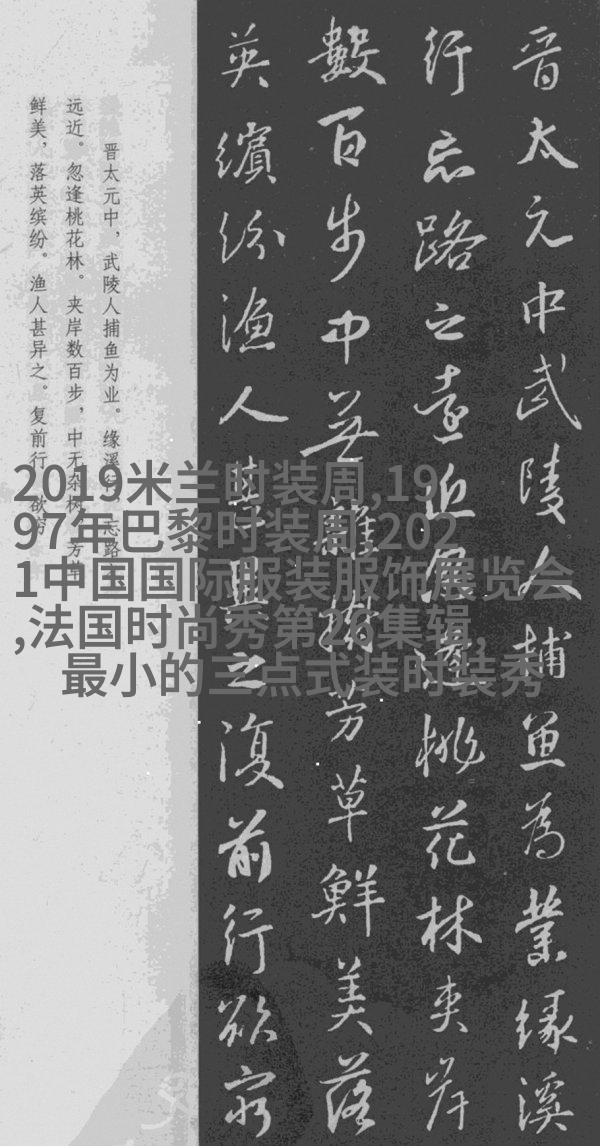 晋太元中武陵人捕魚為業緣溪
行忘路之遠近忽逢桃花林夾岸
數百步中無雜樹芳草鮮美落
英繽紛漁人甚異之復前行欲窮
晋太元中，武陵人捕鱼为业。缘溪行，忘路之
远近。忽逢桃花林。夹岸数百步，中无杂树，芳草
鲜美，落英缤纷。渔人甚异之。复前行，欲穷
2019米兰时装周,19
97年巴黎时装周,202
1中国国际服装服饰展览会
,法国时尚秀第26集辑,
最小的三点式装时装秀